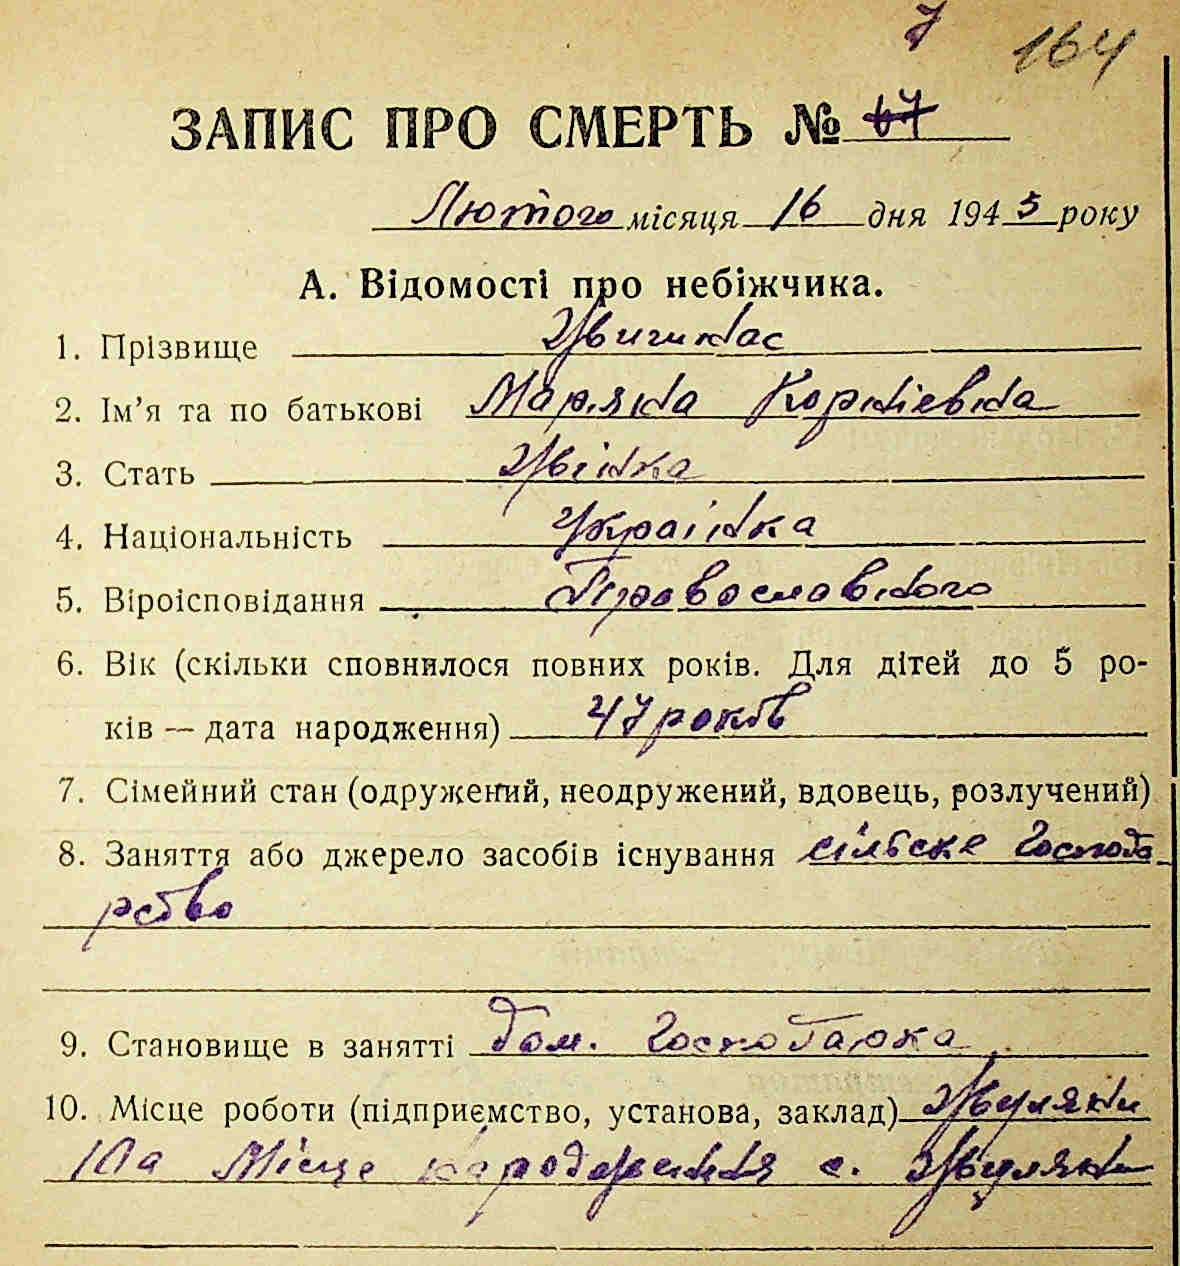 7 164
ЗАПИС ПРО СМЕРТЬ № 67
Лютого місяця 16 дня 1943 року
А. Відомості про небіжчика.
1. Прізвище
2. Ім’я та по батькові Маряна Корніевна
3. Стать Жінка
4. Національність Українка
5. Віроісповідання Православного
6. Вік (скільки сповнилося повних років. Для дітей до 5 ро-
ків — дата народження) 47 років
7. Сімейний стан (одружений, неодружений, вдовець, розлучений)
8. Заняття або джерело засобів існування сільске Господа
рство
9. Становище в занятті Дом. Господарка
10. Місце роботи (підприємство, установа, заклад) Жуляни
На Місце народження с. Жуляни